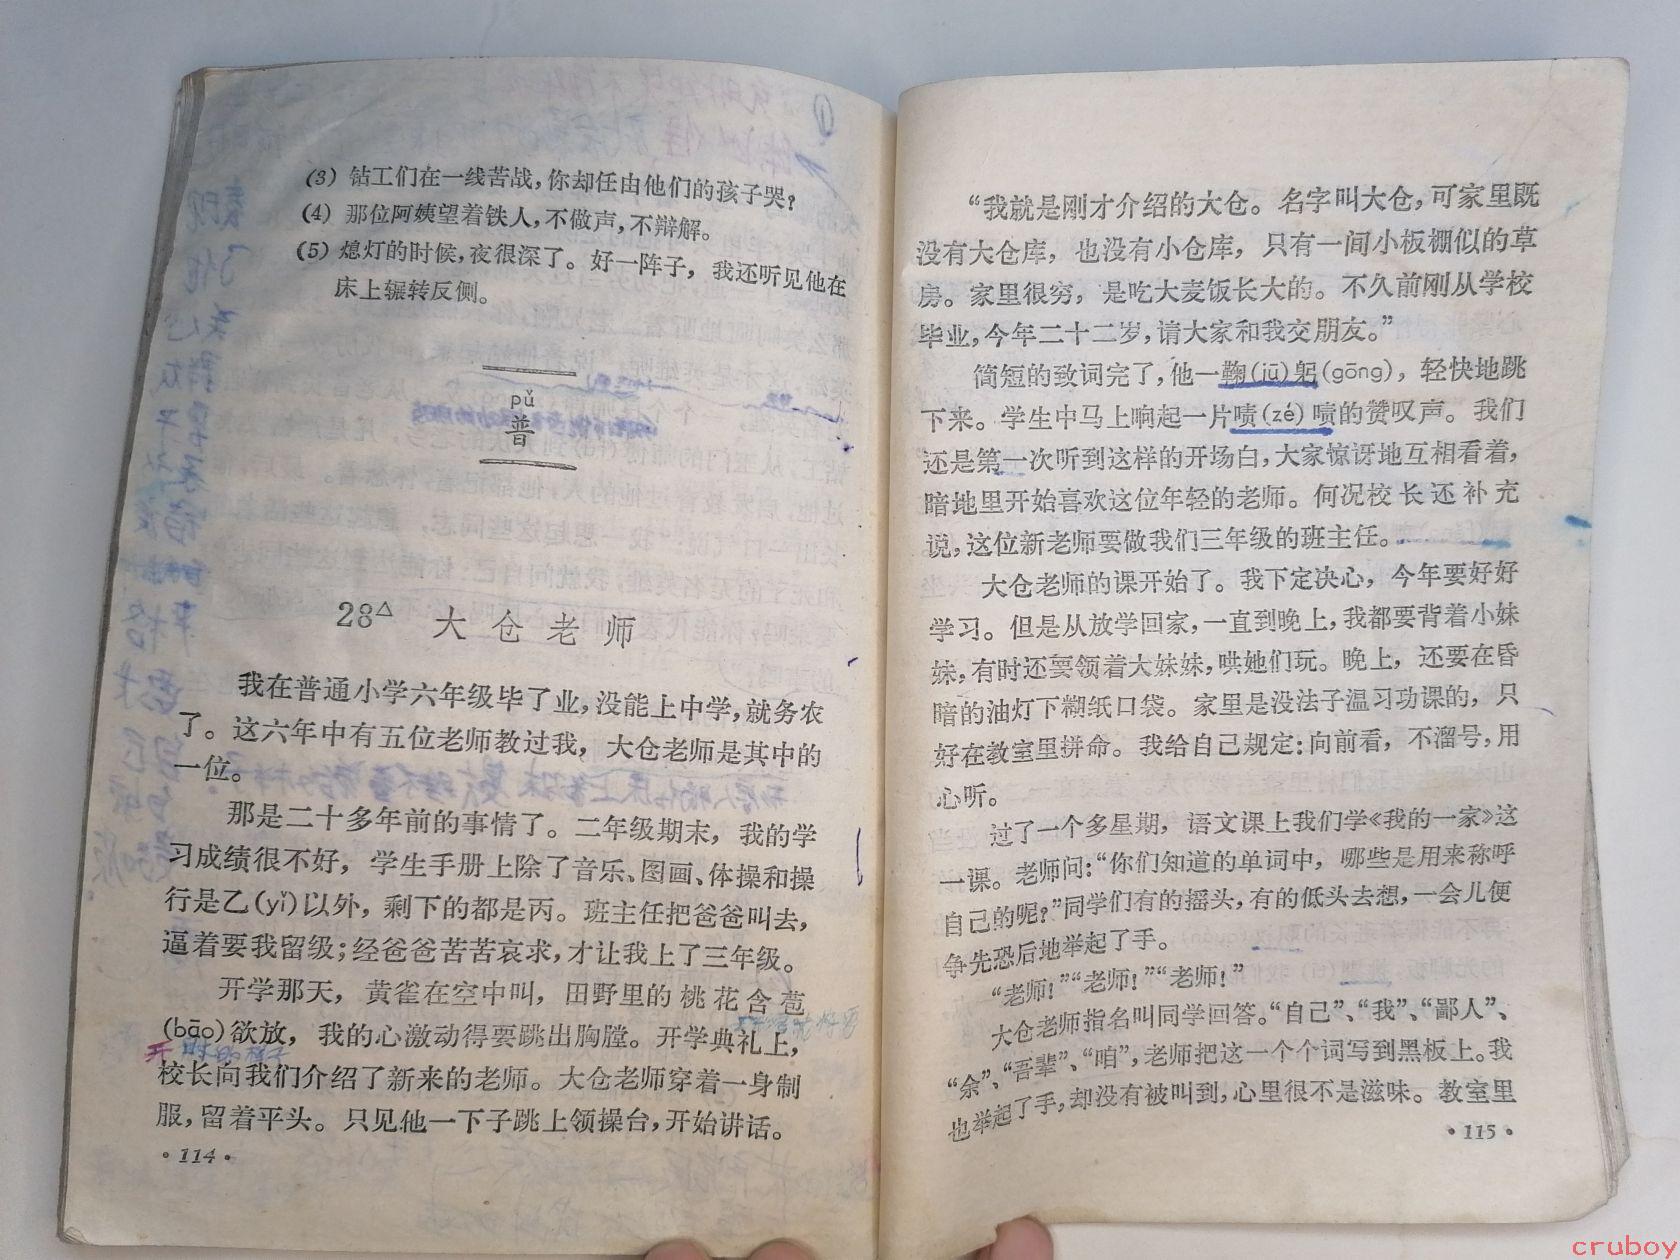 (3) 钻工们在一线苦战，你却任由他们的孩子哭？
(4) 那位阿姨望着铁人，不做声，不辩解。
(5) 熄灯的时候，夜很深了。好一阵子，我还听见他在
床上辗转反侧。
pǔ
普
28△ 大仓老师
我在普通小学六年级毕了业，没能上中学，就务农
了。这六年中有五位老师教过我，大仓老师是其中的
一位。
那是二十多年前的事情了。二年级期末，我的学
习成绩很不好，学生手册上除了音乐、图画、体操和操
行是乙(yǐ)以外，剩下的都是丙。班主任把爸爸叫去，
逼着要我留级；经爸爸苦苦哀求，才让我上了三年级。
开学那天，黄雀在空中叫，田野里的桃花含苞
(bāo)欲放，我的心激动得要跳出胸膛。开学典礼上，
校长向我们介绍了新来的老师。大仓老师穿着一身制
服，留着平头。只见他一下子跳上领操台，开始讲话。
·114·
“我就是刚才介绍的大仓。名字叫大仓，可家里既
没有大仓库，也没有小仓库，只有一间小板棚似的草
房。家里很穷，是吃大麦饭长大的。不久前刚从学校
毕业，今年二十二岁，请大家和我交朋友。”
简短的致词完了，他一鞠(jū)躬(gōng)，轻快地跳
下来。学生中马上响起一片啧(zé)啧的赞叹声。我们
还是第一次听到这样的开场白，大家惊讶地互相看着，
暗地里开始喜欢这位年轻的老师。何况校长还补充
说，这位新老师要做我们三年级的班主任。
大仓老师的课开始了。我下定决心，今年要好好
学习。但是从放学回家，一直到晚上，我都要背着小妹
妹，有时还要领着大妹妹，哄她们玩。晚上，还要在昏
暗的油灯下糊纸口袋。家里是没法子温习功课的，只
好在教室里拼命。我给自己规定：向前看，不溜号，用
心听。
过了一个多星期，语文课上我们学《我的一家》这
一课。老师问：“你们知道的单词中，哪些是用来称呼
自己的呢？”同学们有的摇头，有的低头去想，一会儿便
争先恐后地举起了手。
“老师！”“老师！”“老师！”
大仓老师指名叫同学回答。“自己”、“我”、“鄙人”、
“余”、“吾辈”、“咱”，老师把这一个个词写到黑板上。我
也举起了手，却没有被叫到，心里很不是滋味。教室里
·115·
cruboy